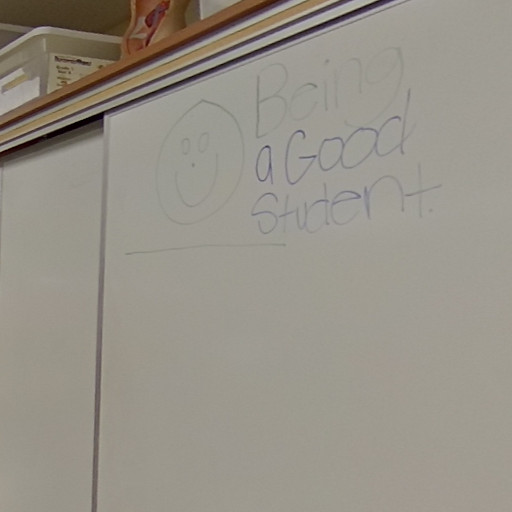 Being
a Good
Student.